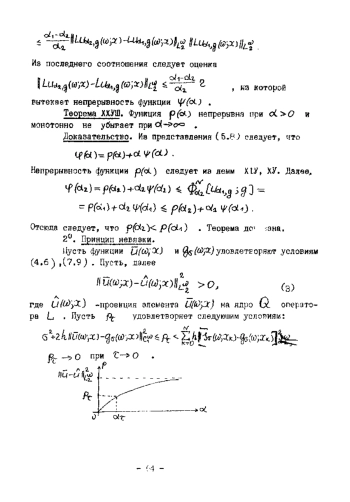 ≤ (α₁-α₂)/α₂ ‖Lu_{α₂,g}(ω;x)-Lu_{α₁,g}(ω;x)‖_{L₂^ω} ‖Lu_{α₁,g}(ω;x)‖_{L₂^ω}.
Из последнего соотношения следует оценка
‖Lu_{α₂,g}(ω;x)-Lu_{α₁,g}(ω;x)‖_{L₂^ω} ≤ (α₁-α₂)/α₂ τ , из которой
вытекает непрерывность функции ψ(α) .
Теорема XXУШ. Функция ρ(α) непрерывна при α>0 и
монотонно не убывает при α→∞ .
Доказательство. Из представления (5.8) следует, что
φ(α)=ρ(α)+αψ(α) .
Непрерывность функции ρ(α) следует из лемм XIУ, XУ. Далее,
φ(α₂)=ρ(α₂)+α₂ψ(α₂) ≤ Φ_{α₂}^N[u_{α₁,g};g]=
=ρ(α₁)+α₂ψ(α₁) ≤ ρ(α₂)+α₂ψ(α₁).
Отсюда следует, что ρ(α₂)<ρ(α₁) . Теорема
2⁰. Принцип невязки.
Пусть функции ū(ω;x) и g_δ(ω;x) удовлетворяют условиям
(4.6),(7.9) . Пусть, далее
‖ū(ω;x)-û(ω;x)‖²_{L₂^ω} >0, (8)
где û(ω;x) -проекция элемента ū(ω;x) на ядро Q операто-
ра L . Пусть ρ_τ удовлетворяет следующим условиям:
ρ_τ →0 при τ→0 .
‖ū-û‖²_{L₂^ω} ρ
ρ_τ
0 α_τ α
- 64 -